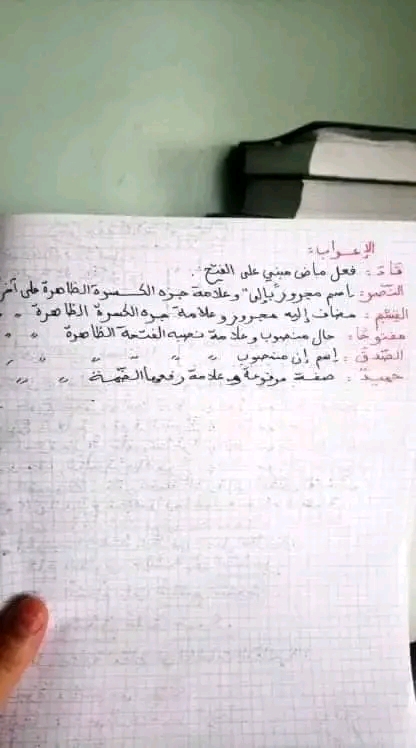 الإعراب:
قاد: فعل ماض مبني على الفتح.
النصر: اسم مجرور بـ"إلى" وعلامة جره الكسرة الظاهرة على آخر
القسم: مضاف إليه مجرور وعلامة جره الكسرة الظاهرة " "
مفتوحا: حال منصوب وعلامة نصبه الفتحة الظاهرة " "
الصدق: إسم إن منصوب " " " " "
حميد: صفة مرفوعة وعلامة رفعها الضمة " "